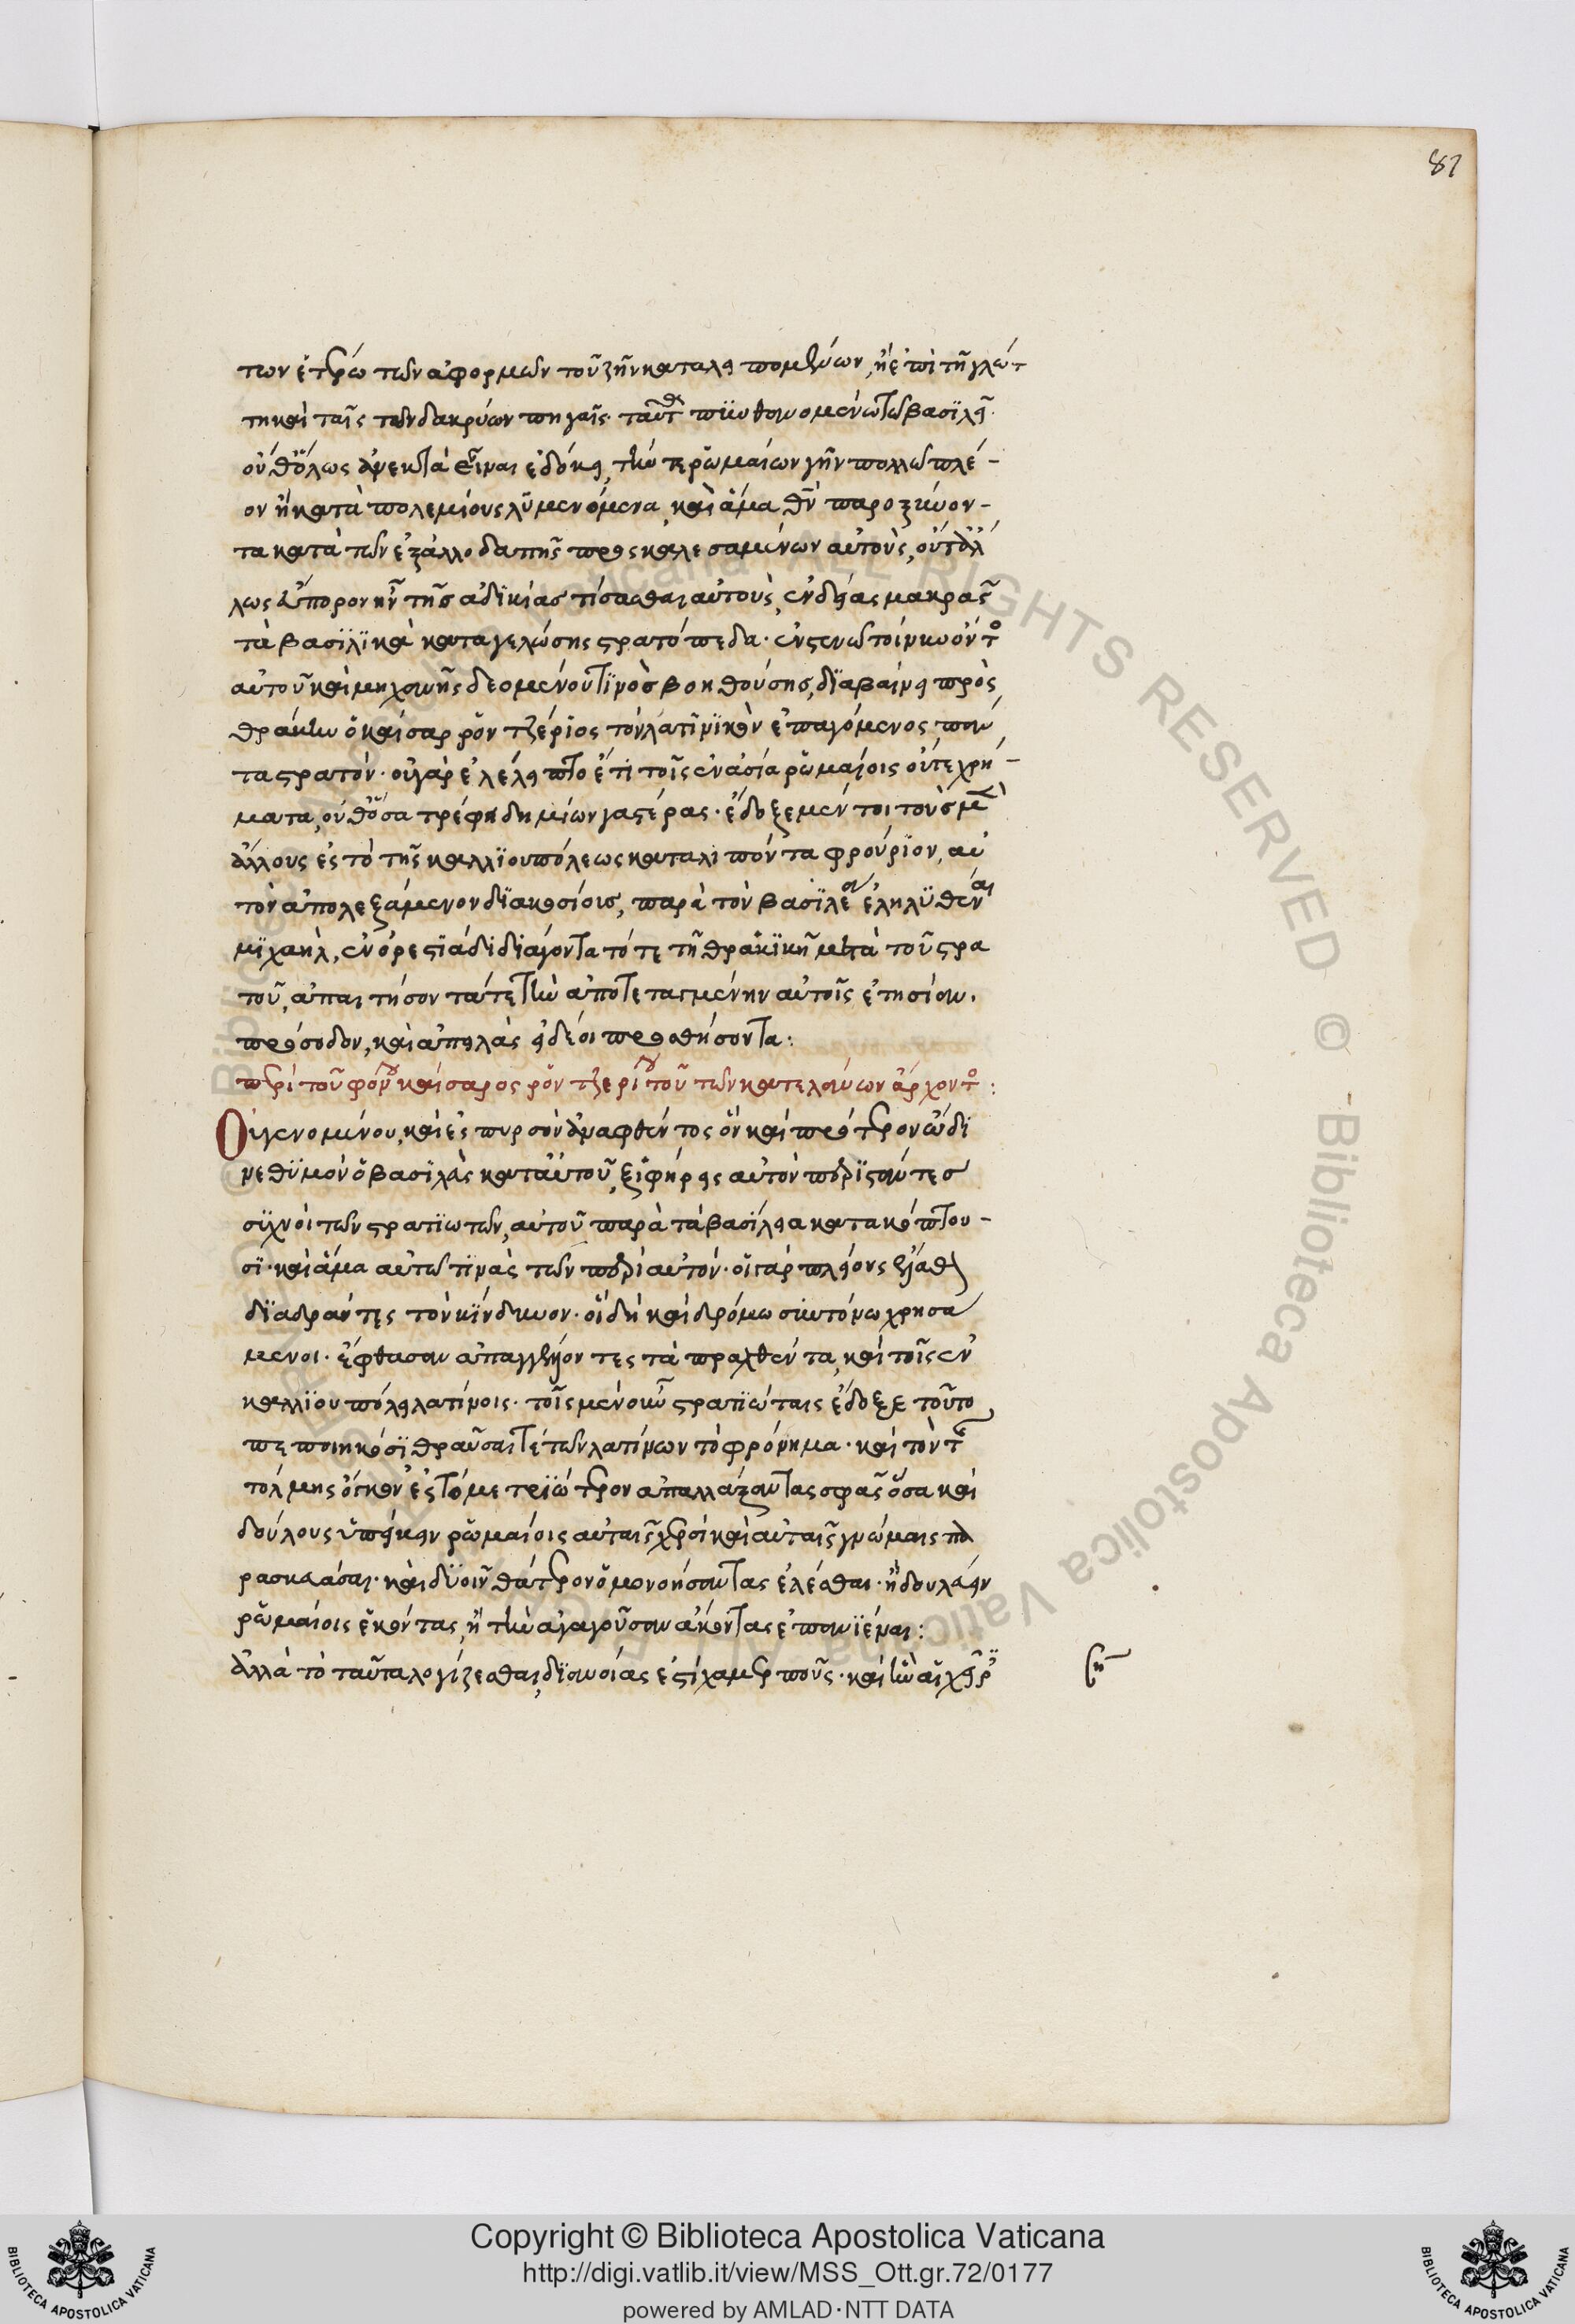 81
των ἑτέρω τῶν ἀφορμῶν τοῦ ζῆν καταλειπομένων, ἢ ἐπὶ τῇ γλώτ
τη καὶ ταῖς τῶν δακρύων πηγαῖς. ταῦτα δὲ πϋνθανομένω τῶ βασϊλεῖ
οὐθ' ὅλως ἀνεκτὰ εἶναι ἐδόκει, τὴν τε ῥωμαίων γῆν πολλῶ πλέ-
ον ἢ κατὰ πολεμίους λῡμενόμενα, καὶ ἅμα θεὸν παροξύνον-
τα κατὰ τῶν ἐξ ἀλλοδαπῆς προσκαλεσαμένων αὐτοὺς, οὔτ' ἄλ
λως ἄπορον ἦν τῆς ἀδϊκίας τίσασθαι αὐτοὺς, ἐνδείας μακρᾶς
τὰ βασϊλϊκὰ καταγελώσης στρατόπεδα. ἐν στενῶ τοίνυν ὄντος
αὐτοῦ καὶ μηχανῆς δεομένου τϊνὸς βοηθούσης, δϊαβαίνει πρὸς
θράκην ὁ καῖσαρ ῥοντζέριος τὸν λατϊνϊκὸν ἐπαγόμενος πάν
τα στρατόν. οὐ γὰρ ἐλέλειπτο ἔτι τοῖς ἐν ἀσία ῥωμαίοις οὔτε χρή-
ματα, οὔθ' ὅσα τρέφει δημίων γαστέρας. ἔδοξε μέν τοι τοὺς μὲν
ἄλλους ἐς τὸ τῆς καλλϊουπόλεως καταλιπόντα φρούρϊον, αὐ
τὸν ἀπολεξάμενον δϊακοσίους, παρὰ τὸν βασϊλέα ἐληλϋθέναι
μϊχαὴλ, ἐν ὀρεστϊάδι δϊάγοντα τότε τῆ θρακϊκῆ μετὰ τοῦ στρα
τοῦ, ἀπαιτήσοντά τε τὴν ἀποτεταγμένην αὐτοῖς ἐτησίαν.
πρόσοδον, καὶ ἀπειλὰς εἰ δέοι προσθήσοντα:
περὶ τοῦ φόνου καίσαρος ῥοντζερίου τοῦ τῶν κατελάνων ἄρχοντος:
Οὗ γενομένου, καὶ ἐς πυρσὸν ἀναφθέντος ὃν καὶ πρότερον ὤδι
νε θϋμὸν ὁ βασϊλεὺς κατ' αὐτοῦ, ξϊφήρεις αὐτὸν περϊστάντες
σϋχνοὶ τῶν στρατϊωτῶν, αὐτοῦ παρὰ τὰ βασίλεια κατακόπτου-
σϊ. καὶ ἅμα αὐτῶ τϊνὰς τῶν περὶ αὐτόν. οἱ γὰρ πλείους
δϊαδράντες τὸν κίνδυνον. οἳ δὴ καὶ δρόμω σϋντόνω χρησά
μενοι. ἔφθασαν ἀπαγγέλλοντες τὰ πραχθέντα, καὶ τοῖς ἐν
καλλϊουπόλει λατίνοις. τοῖς μὲν οὖν στρατϊώταις ἔδοξε τοῦτο
πεποιηκόσϊ θραῦσαί τε τῶν λατίνων τὸ φρόνημα. καὶ τὸν τῆς
τόλμης ὄγκον ἐς τὸ μετρϊώτερον ἀπαλλάξαντας σφᾶς ὅσα καὶ
δούλους ὑπείκειν ῥωμαίοις αὐταῖς χερσὶ καὶ αὐταῖς γνώμαις πα
ρασκευάσαι. καὶ δϋοῖν θάτερον ὁμονοήσαντας ἑλέσθαι. ἢ δουλεύειν
ῥωμαίοις ἑκόντας, ἢ τὴν ἄγαγοῦσαν ἄκοντας ἐπανϊέναι:
ἀλλὰ τὸ ταῦτα λογίζεσθαι, δϊανοίας ἐστὶ χαμερποῦς. καὶ ἣν